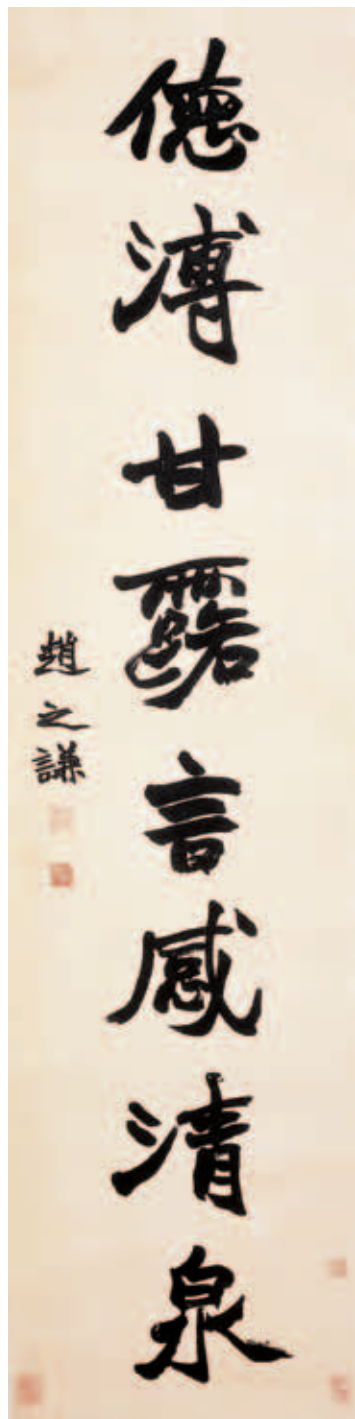 德溥甘露言感清泉
趙之謙